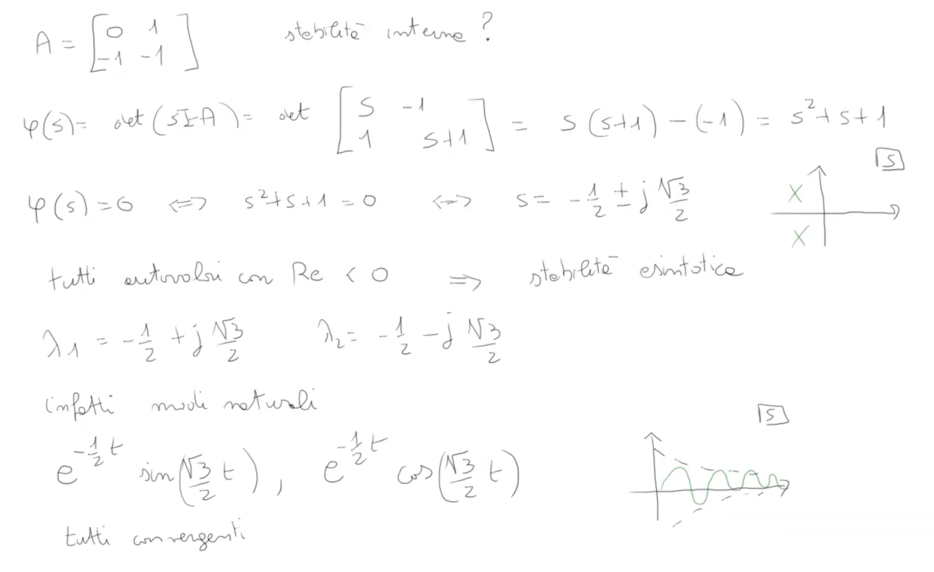 A = [0 1 -1 -1] stabilità interna?
φ(s) = det(sI-A) = det [s -1 1 s+1] = s(s+1)-(-1) = s²+s+1
φ(s)=0 ⇔ s²+s+1=0 ⇔ s= -1/2 ± j √3/2
S
tutti autovalori con Re < 0 ⇒ stabilità asintotica
λ1 = -1/2 + j √3/2 λ2 = -1/2 - j √3/2
infatti modi naturali
S
e^{-1/2 t} sin(√3/2 t), e^{-1/2 t} cos(√3/2 t)
tutti convergenti